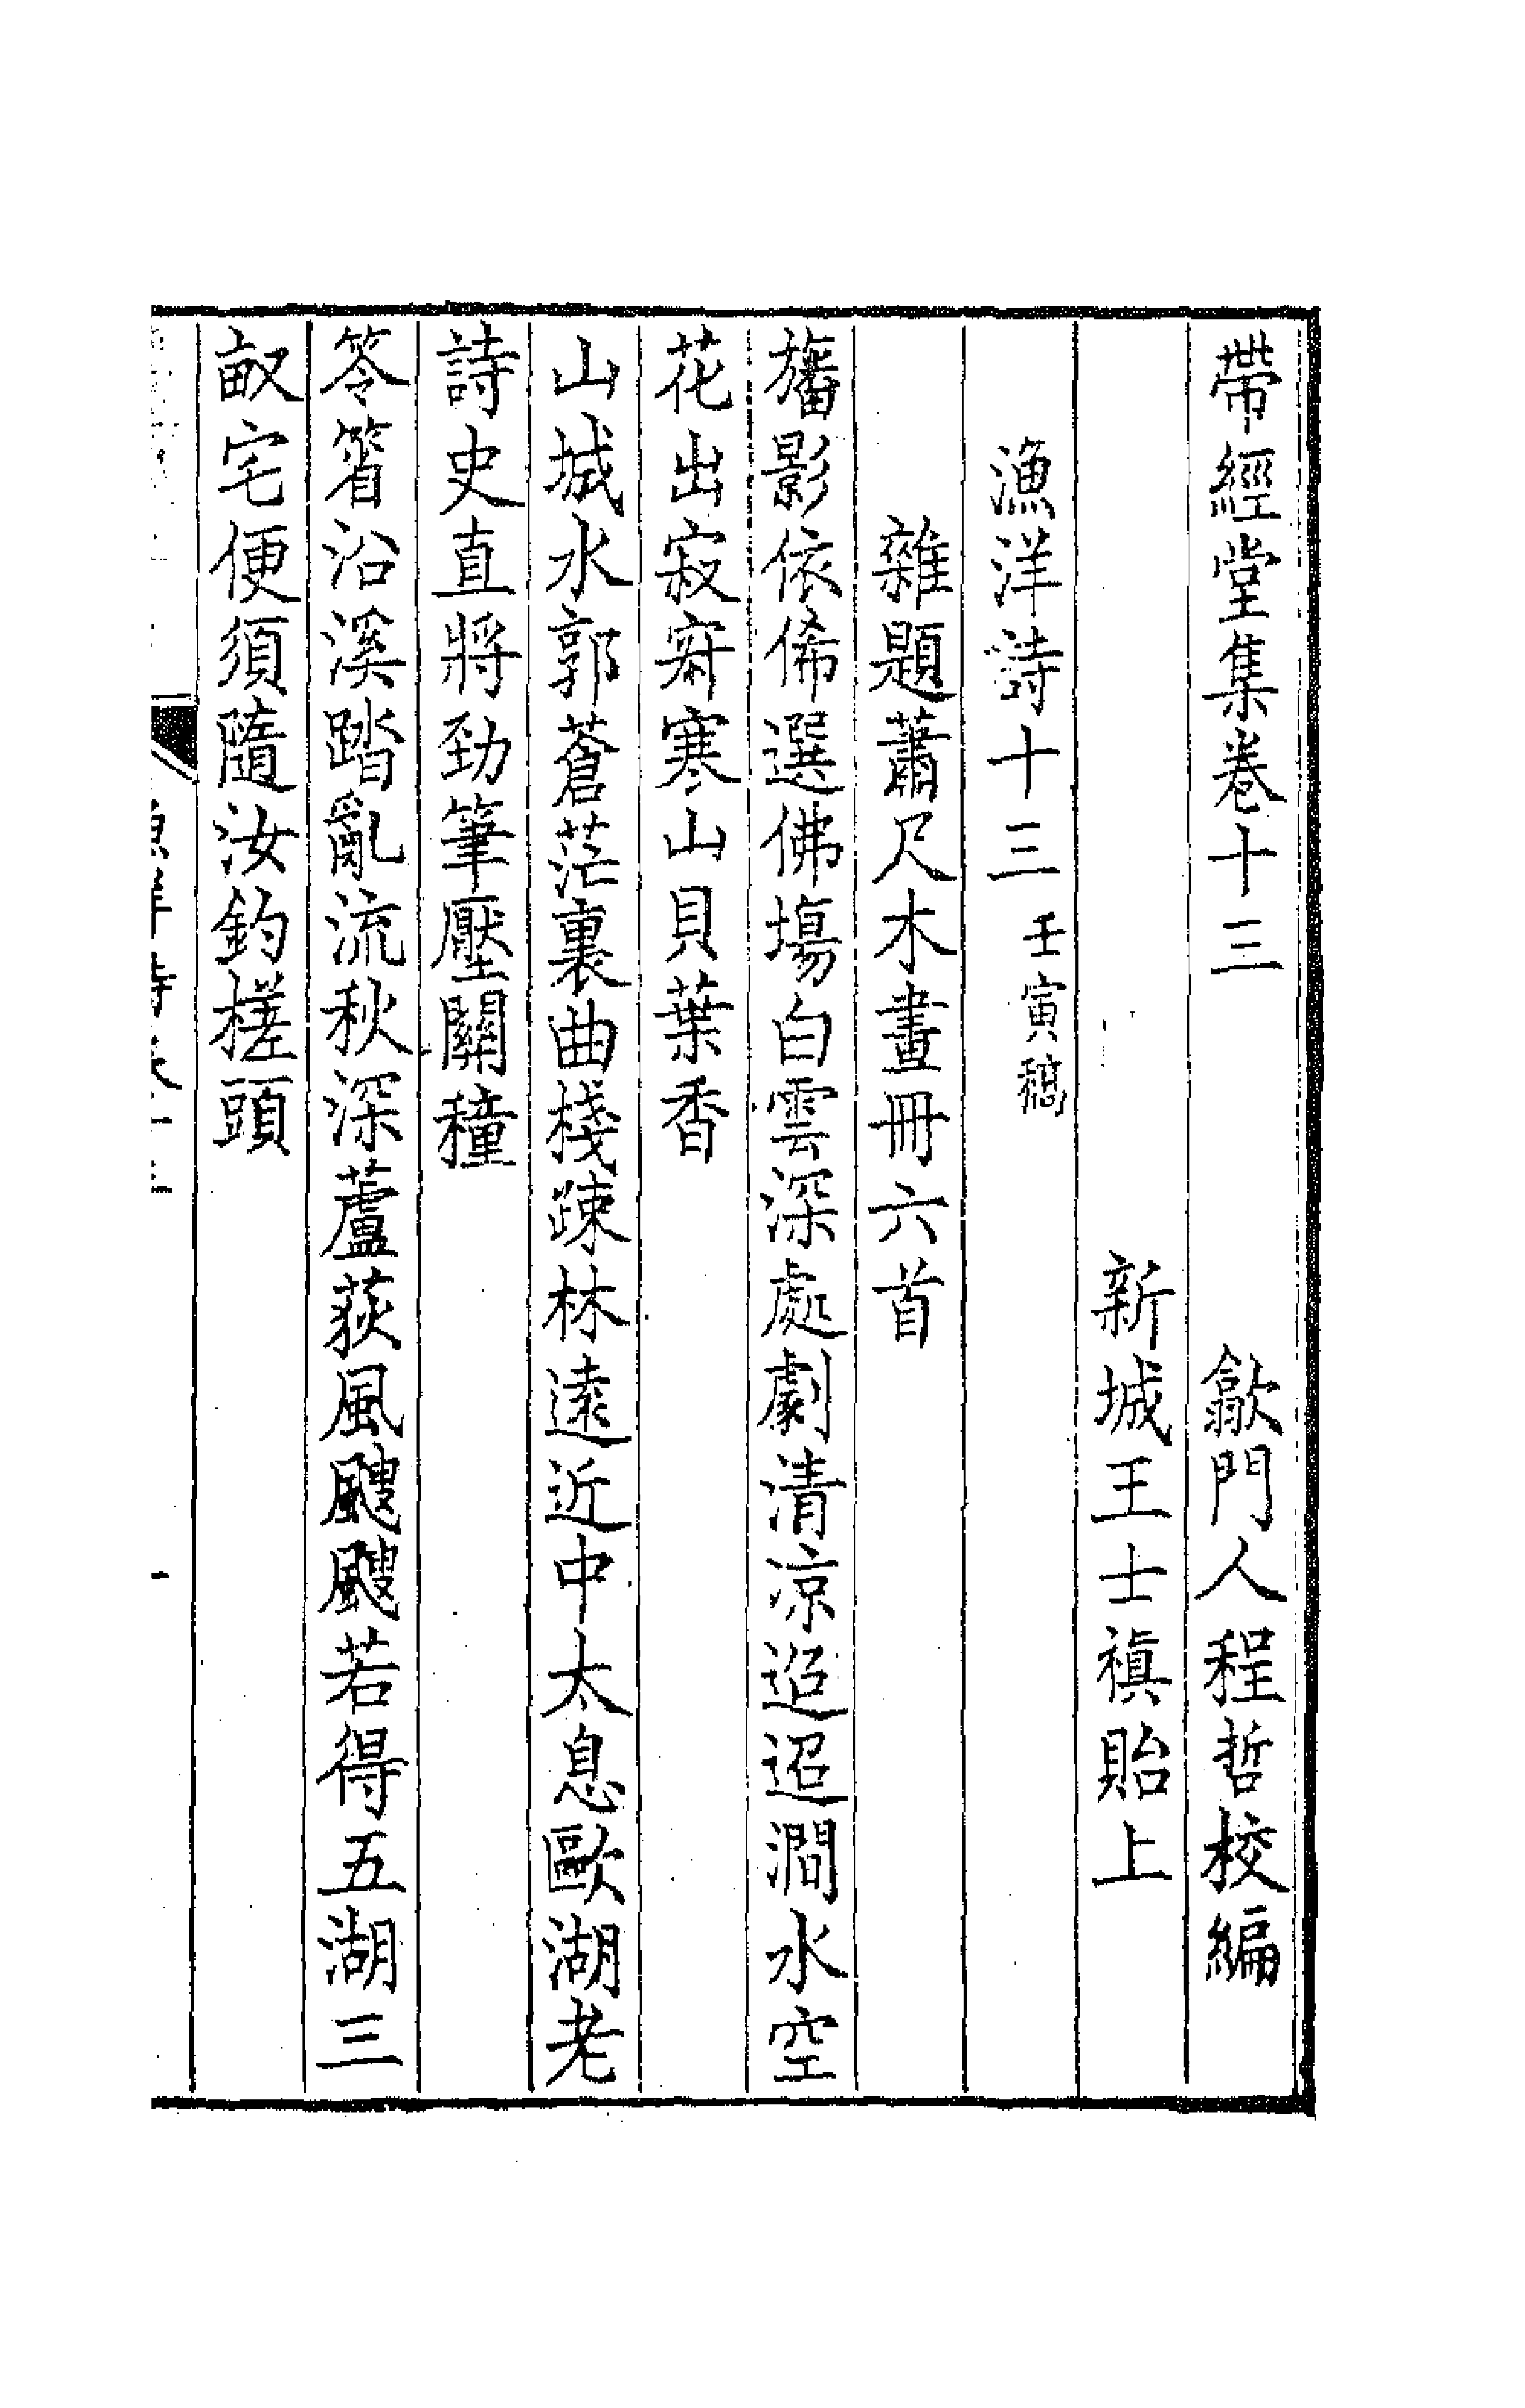 帶經堂集卷十三　歙門人程哲校編
新城王士禛貽上
漁洋詩十三 壬寅稿
雜題蕭尺木畫冊六首
旛影依俙選佛場白雲深處劇清涼迢迢澗水空
花出寂寞寒山貝葉香
山城水郭蒼茫裏曲棧疎林遠近中太息歐湖老
詩史直將勁筆壓關穜
笭箵沿溪踏亂流秋深蘆荻風颼颼若得五湖三
畝宅便須隨汝釣槎頭